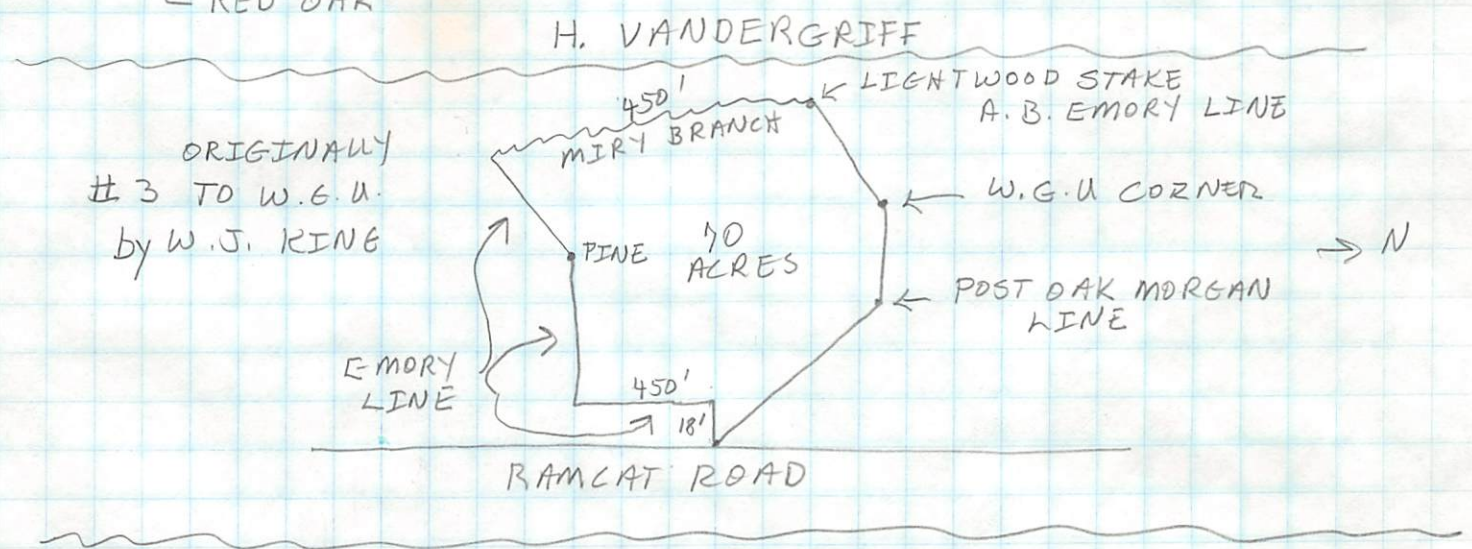 RED OAK
H. VANDERGRIFF
450'
MIRY BRANCH
LIGHTWOOD STAKE
A. B. EMORY LINE
ORIGINALLY
#3 TO W.G.U.
by W.J. KING
W.G.U CORNER
N
PINE
70
ACRES
POST OAK MORGAN
LINE
EMORY
LINE
450'
18'
RAMCAT ROAD